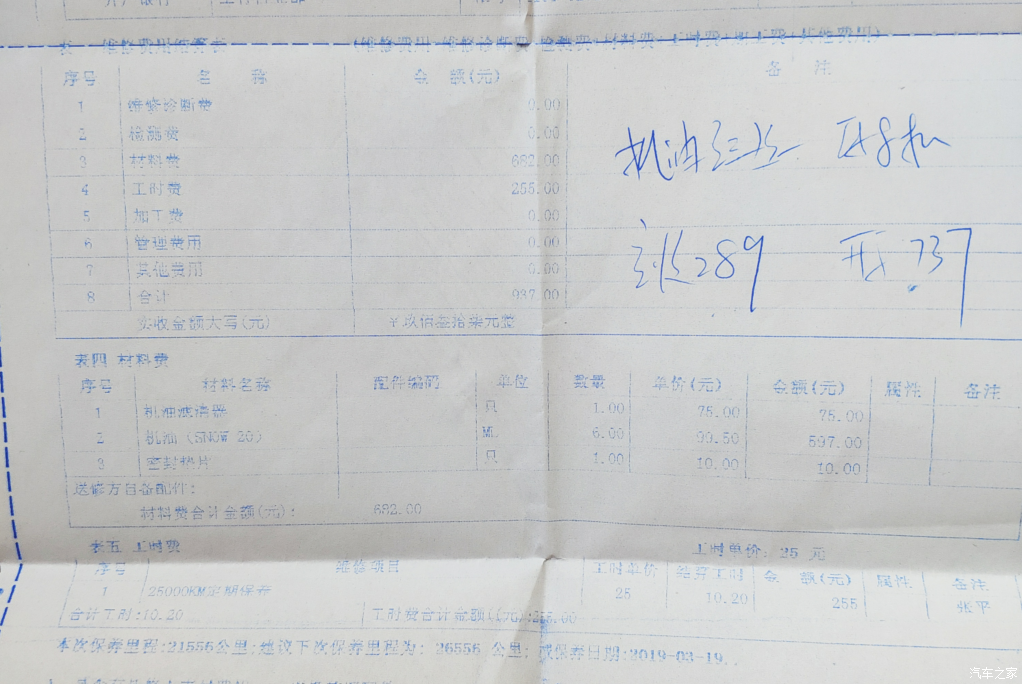 维修费用结算表 (维修费用=维修诊断费+检测费+材料费+工时费+加工费+其他费用)
序号 名 称 金 额(元) 备 注
1 维修诊断费 0.00
2 检测费 0.00
3 材料费 682.00
4 工时费 255.00
5 加工费 0.00
6 管理费用 0.00
7 其他费用 0.00
8 合计 937.00
实收金额大写(元) ¥玖佰叁拾柒元整
机油
289 开 737
表四 材料费
序号 材料名称 配件编码 单位 数量 单价(元) 金额(元) 属性 备注
1 机油滤清器 只 1.00 75.00 75.00
2 机油 (SNOW 20) 瓶 6.00 99.50 597.00
3 密封垫片 只 1.00 10.00 10.00
送修方自备配件:
材料费合计金额(元): 682.00
表五 工时费 工时单价: 25 元
序号 维修项目 工时单价 结算工时 金 额(元) 属性 备注
1 25000KM定期保养 25 10.20 255 张平
合计工时:10.20 工时费合计金额(元):255.00
本次保养里程:21556公里;建议下次保养里程为: 26556 公里; 或保养日期:2019-03-19.
汽车之家